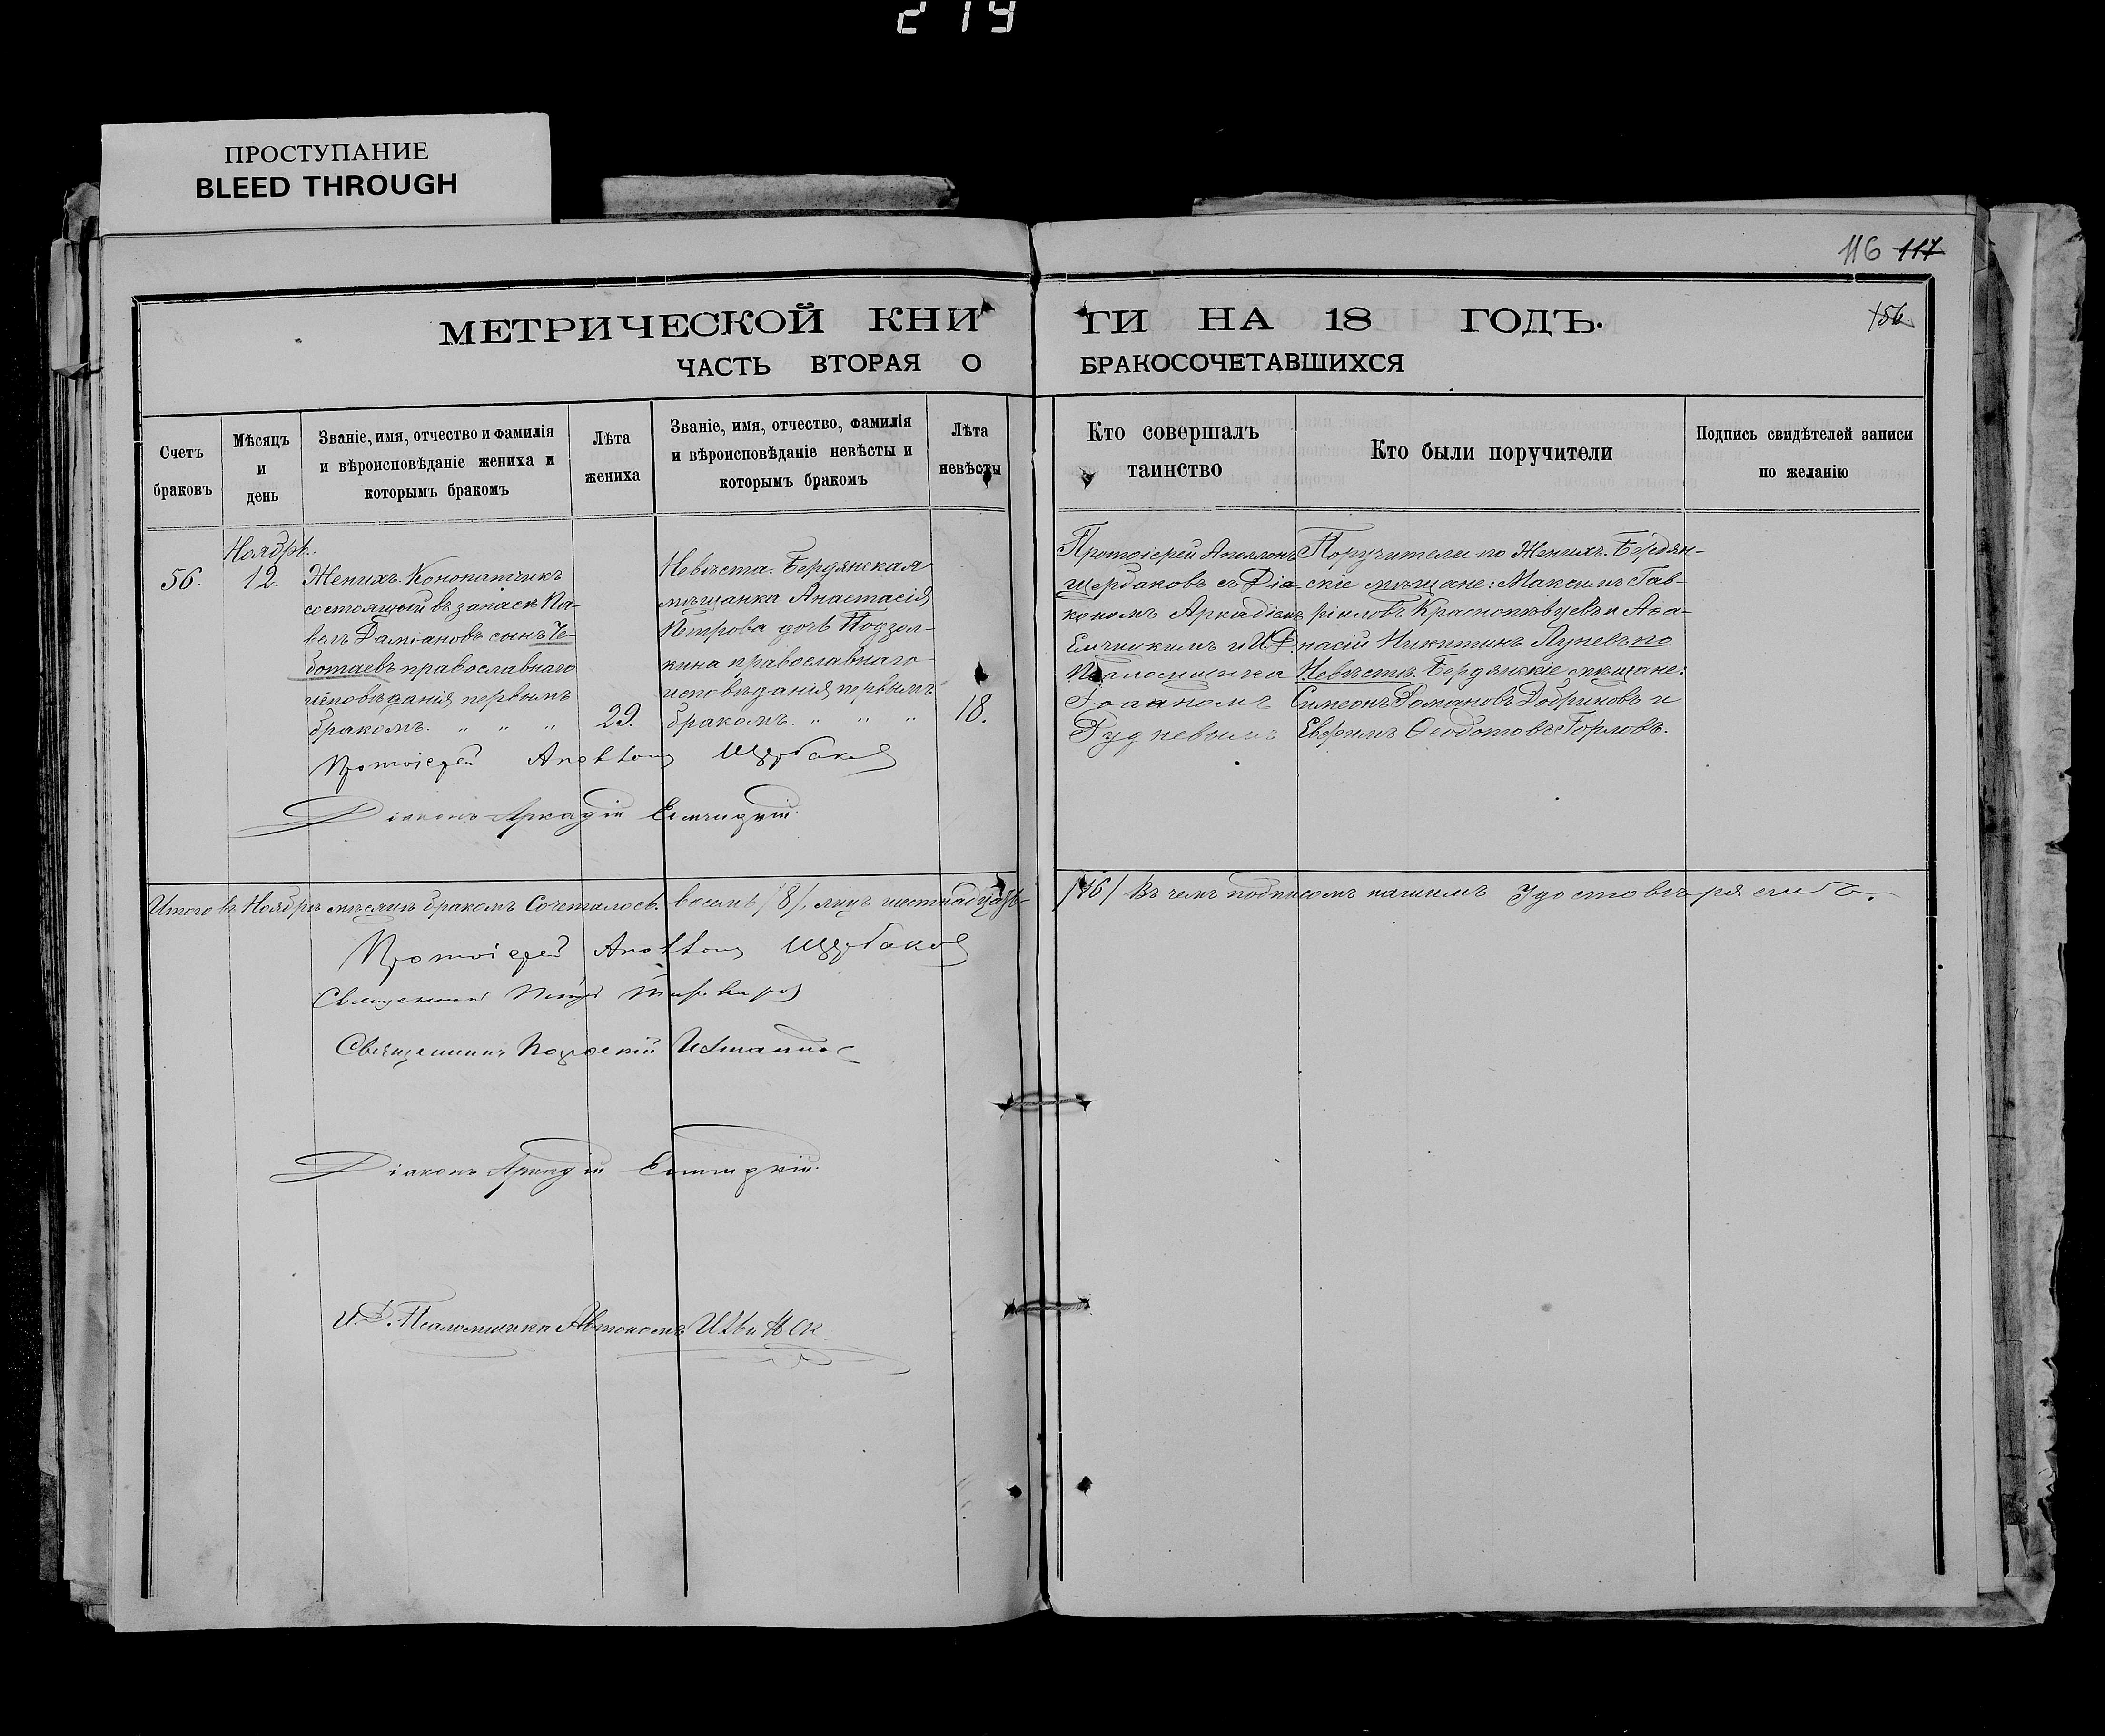 219
ПРОСТУПАНИЕ
BLEED THROUGH
116 117
156
МЕТРИЧЕСКОЙ КНИГИ НА 18 ГОДЪ.
ЧАСТЬ ВТОРАЯ О БРАКОСОЧЕТАВШИХСЯ
Счетъ
браковъ
Мѣсяцъ
и
день
Званіе, имя, отчество и фамилія
и вѣроисповѣданіе жениха и
которымъ бракомъ
Лѣта
жениха
Званіе, имя, отчество, фамилія
и вѣроисповѣданіе невѣсты и
которымъ бракомъ
Лѣта
невѣсты
Кто совершалъ
таинство
Кто были поручители
Подпись свидѣтелей записи
по желанію
56.
Ноября.
12.
Женихъ. Конопатчикъ
состоящій въ запасѣ Па-
велъ Даміановъ сынъ Че-
ботаевъ православнаго
исповѣданія первымъ
бракомъ. „ „ „
29.
Невѣста. Бердянская
мѣщанка Анастасія
Петрова дочь Подзол-
кина православнаго
исповѣданія первымъ
бракомъ. „ „ „
18.
Протоіерей Аполлонъ
Щербаковъ съ Діа-
кономъ Аркадіемъ
и И.Д.
Псаломщика
Іоанномъ
Рудневымъ
Поручители по Женихѣ. Бердян-
скіе мѣщане: Максимъ Гав-
ріиловъ Краснопѣвцевъ и Аѳа-
насій Никитинъ Лупевъ по
Невѣстѣ. Бердянскіе мѣщане:
Симеонъ Романовъ Добриновъ и
Евфимъ Ѳеодотовъ Горловъ.
Протоіерей Аполлонъ Щербаковъ
Діаконъ Аркадій
Итого въ Ноябрѣ мѣсяцѣ бракомъ Сочеталось восемь /8/, лицъ шестнадцать /16/ Въ чемъ подписомъ нашимъ Удостовѣряемъ.
Протоіерей Аполлонъ Щербаковъ
Священникъ Петръ
Священникъ
Діаконъ Аркадій
И.Д. Псаломщика Автономъ